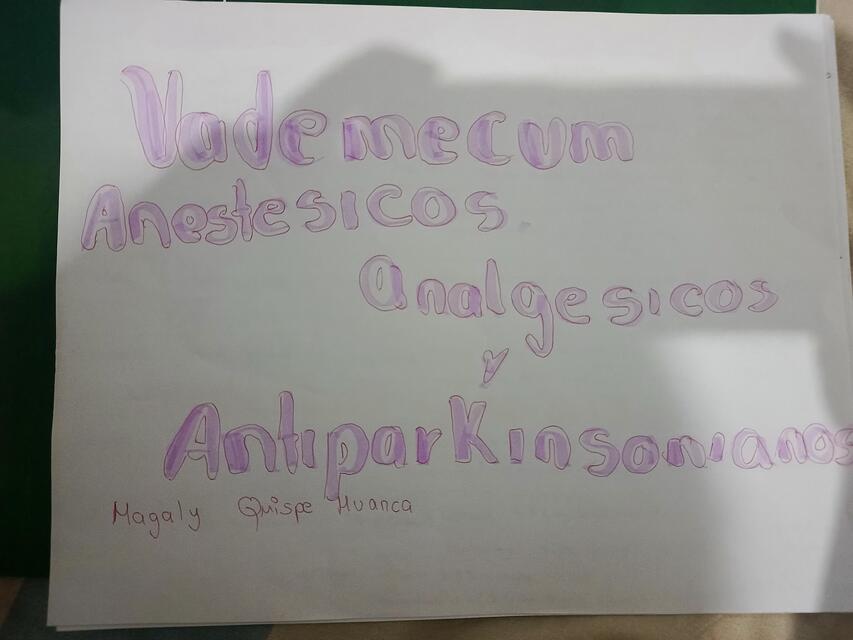 Vademecum
Anestesicos
Analgesicos
y
Antiparkinsonianos
Magaly Quispe Huanca